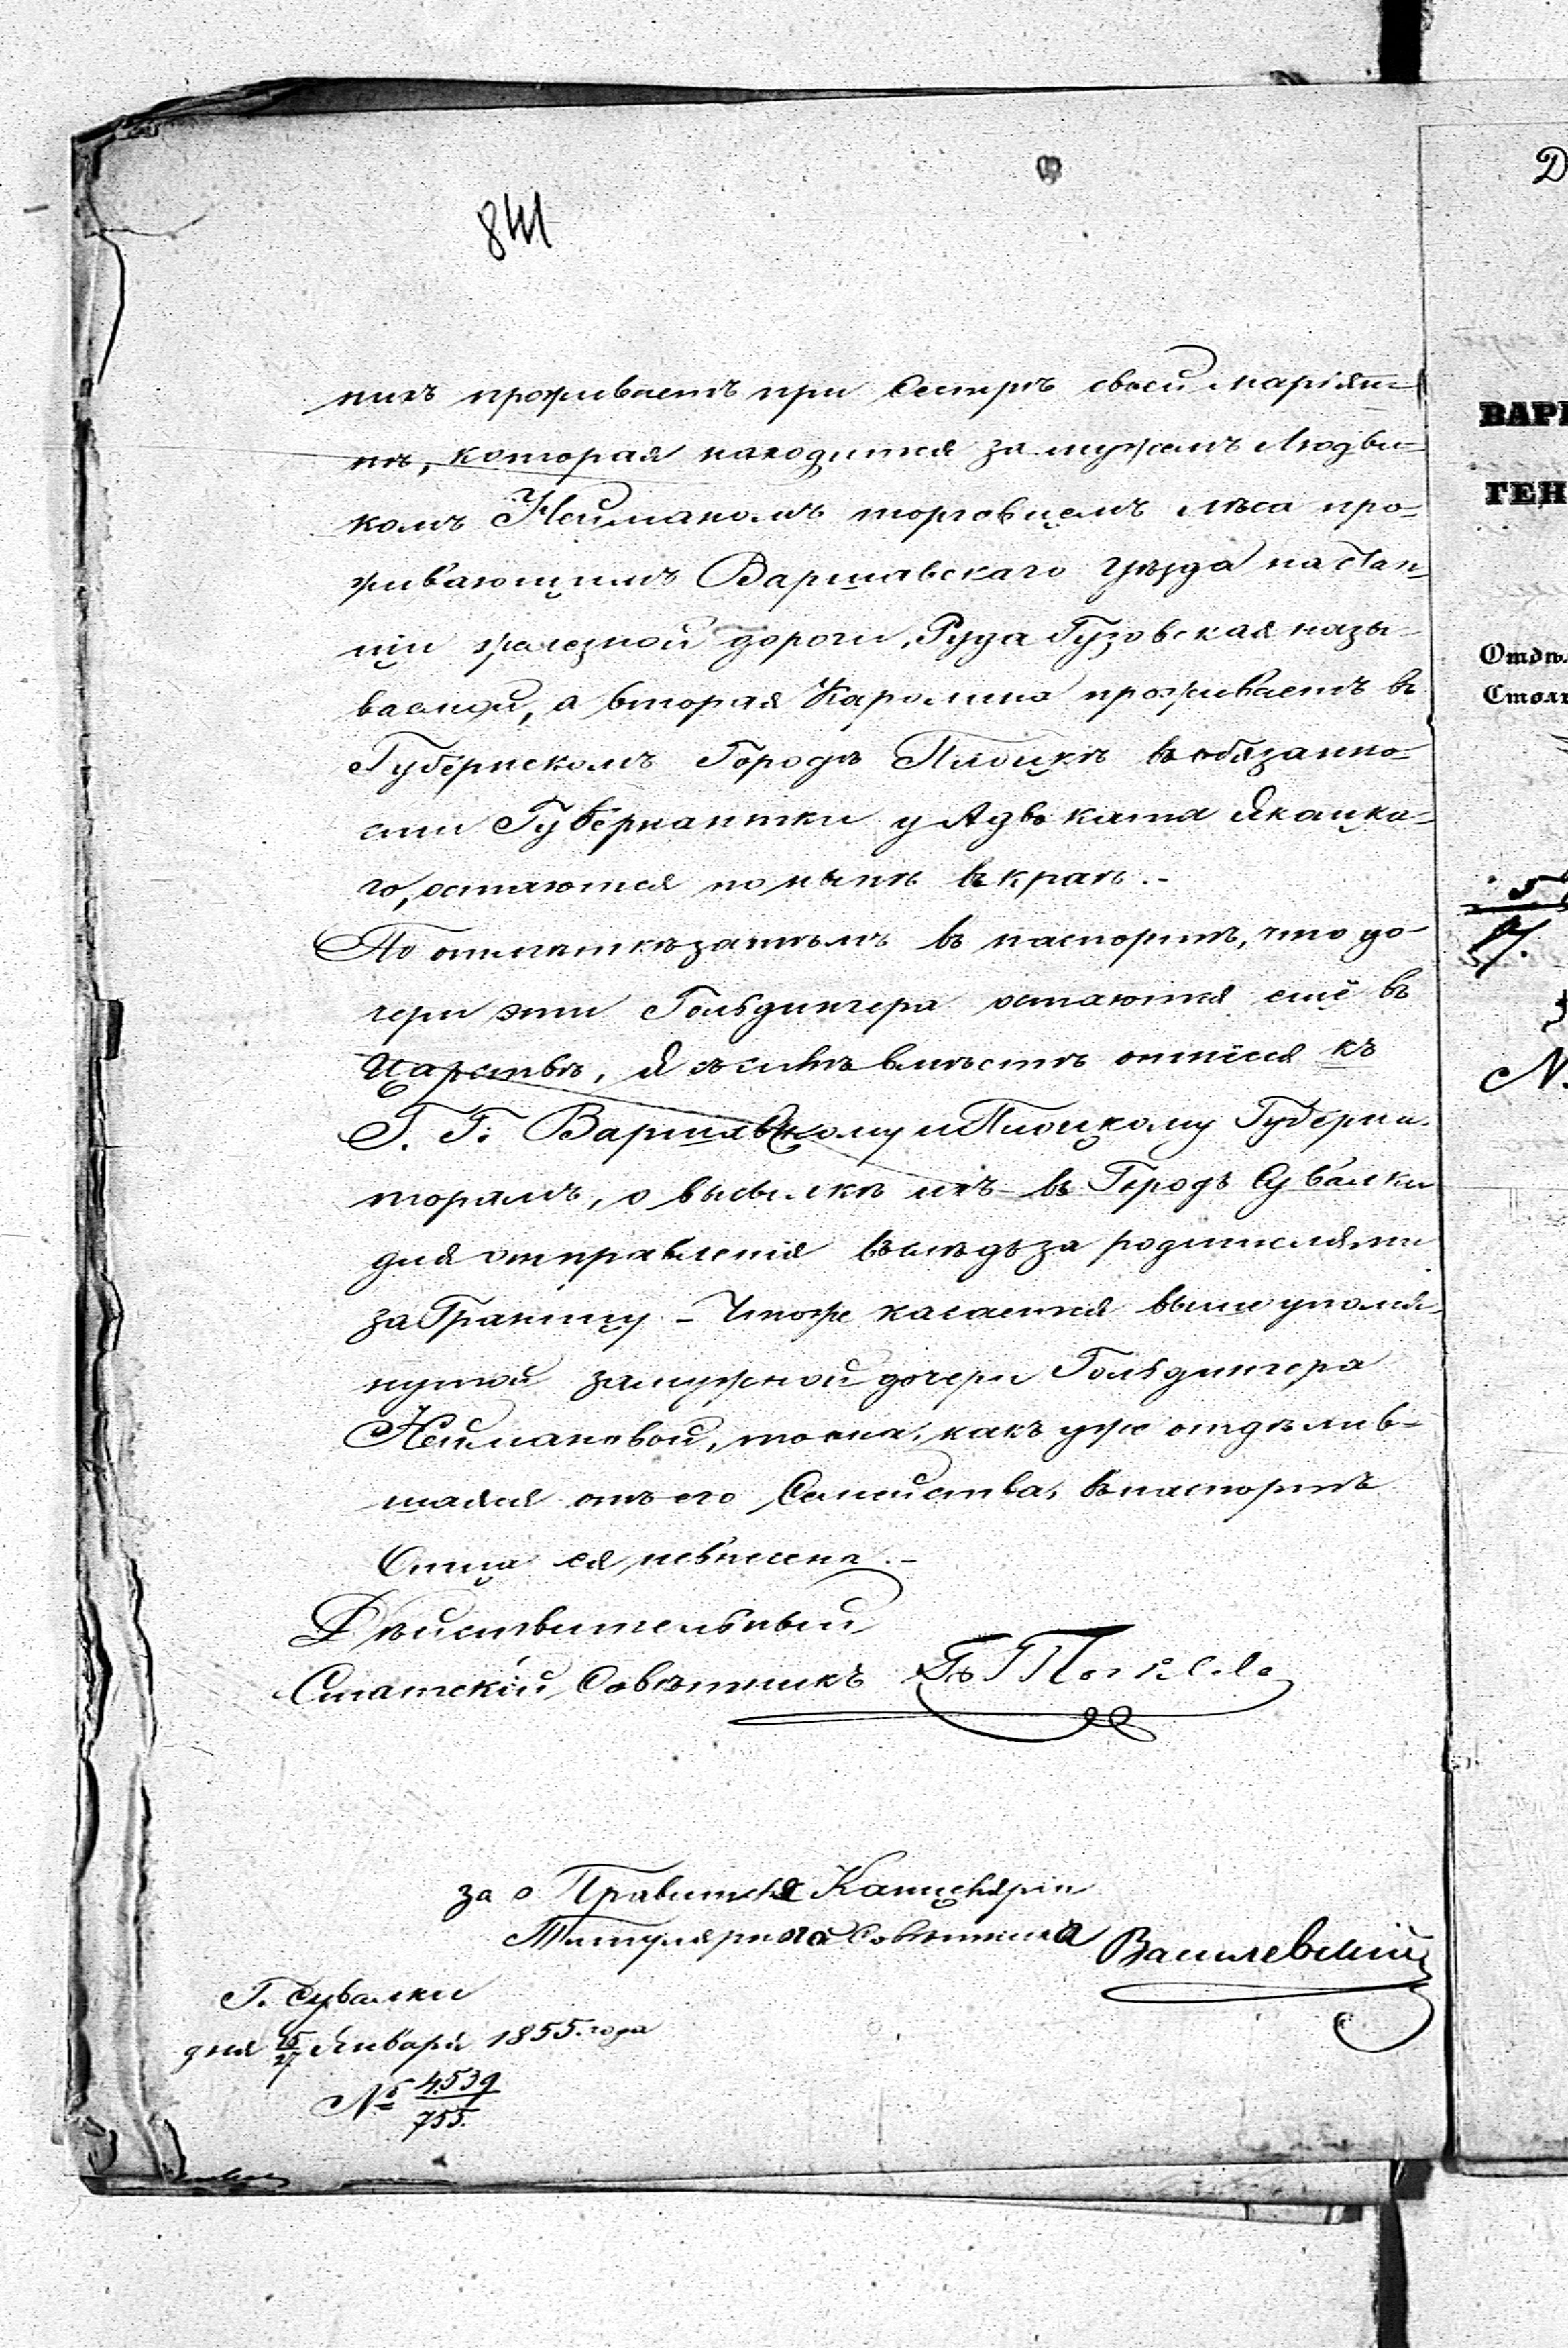 841
нихъ проживаетъ при Сестрѣ своей Маріян-
нѣ, которая находится за мужемъ Людви-
комъ Нейманомъ торговцемъ лѣса про-
живающимъ Варшавскаго Уѣзда на стан-
ціи железной дороги, Руда Гузовская назы-
ваемой, а вторая Каролина проживаетъ въ
Губернскомъ Городѣ Плоцкѣ въ обязанно-
сти Гувернантки у Адвоката
го, остаются по нынѣ въ краѣ.-
По отмѣткѣ затѣмъ въ паспортѣ, что до-
чери эти Гольдингера остаются ещё въ
Царствѣ, я съ симъ вмѣстѣ отнёсся къ
Г. Г. Варшавскому и Плоцкому Губерна-
торамъ, о высылкѣ ихъ въ Городъ Сувалки
для отправленія въ слѣдъ за родителями
за Границу - Чтоже касается выше упомя-
нутой замужной дочери Гольдингера
Неймановой, то она, какъ уже отдѣлив-
шаяся отъ его Семейства, въ паспортъ
Отца ея невнесена.-
Дѣйствительный
Статскій Совѣтникъ
за Правителя Канцеляріи
Титулярнаго Совѣтника Василевскій
Г. Сувалки
дня 15/27 Января 1855 года
№ 4539/755.
Д
ВАР
ГЕН
Отдѣ
Стол
N.